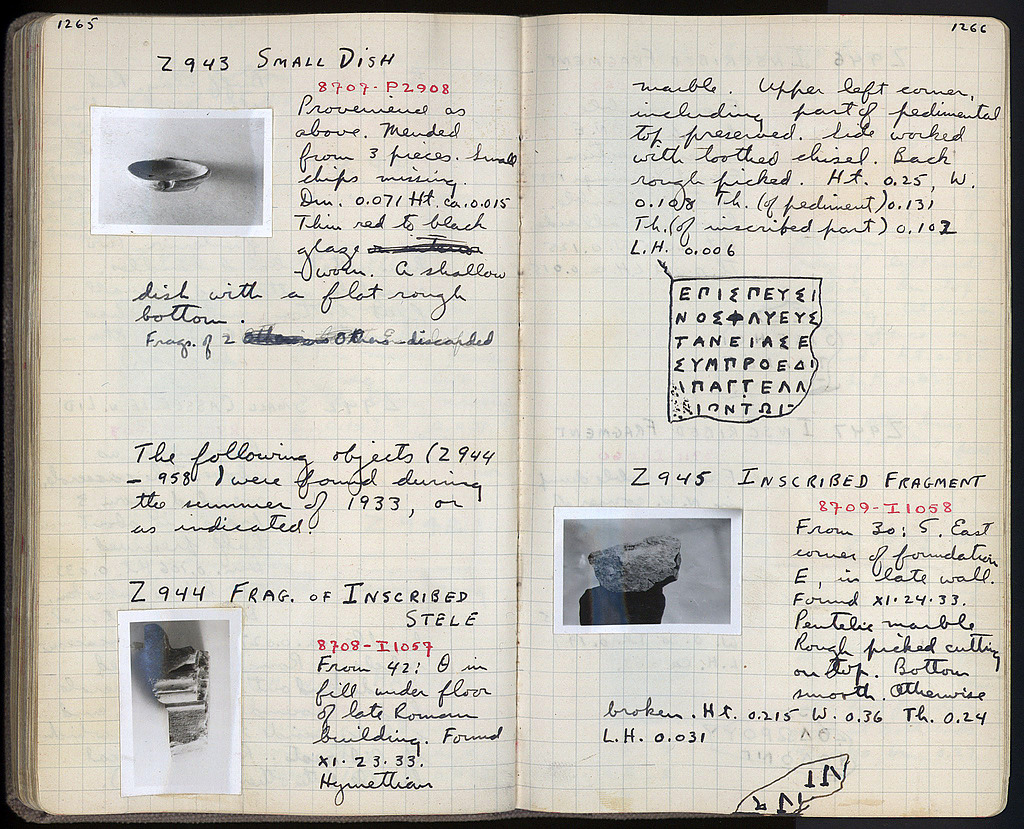 1265
Z 943 SMALL DISH
8707-P2908
Provenience as
above. Mended
from 3 pieces. Small
chips missing.
Dm. 0.071 Ht. ca. 0.015
Thin red to black
glaze
worn. A shallow
dish with a flat rough
bottom.
Frags. of 2 others discarded
The following objects (Z 944
- 958) were found during
the summer of 1933, or
as indicated.
Z 944 FRAG. OF INSCRIBED
STELE
8708-I1057
From 42: Θ in
fill under floor
of late Roman
building. Found
XI.23.33.
Hymettian
1266
marble. Upper left corner,
including part of pedimental
top preserved. Side worked
with toothed chisel. Back
rough picked. Ht. 0.25, W.
0.108 Th. (of pediment) 0.131
Th. (of inscribed part) 0.102
L.H. 0.006
ΕΠΙΣΠΕΥΣΙ
ΝΟΣΦΛΥΕΥΣ
ΤΑΝΕΙΑΣΕ
ΣΥΜΠΡΟΕΔΙ
ΙΠΑΓΓΕΛΛ
ΙΟΝΤΩΙ
Z 945 INSCRIBED FRAGMENT
8709-I1058
From 30: 5. East
corner of foundation
E, in late wall.
Found XI.24.33.
Pentelic marble
Rough picked cutting
on top. Bottom
smooth. Otherwise
broken. Ht. 0.215 W. 0.36 Th. 0.24
L.H. 0.031